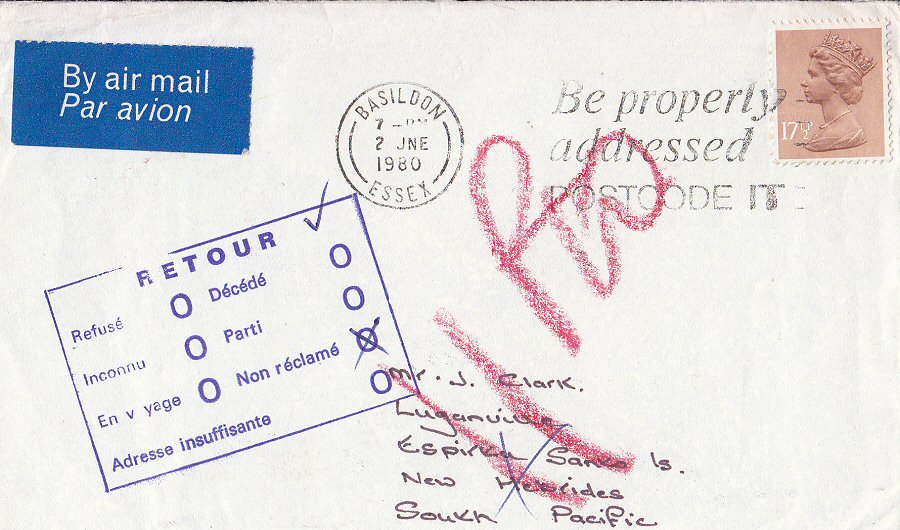 By air mail
Par avion
BASILDON
7 - PM
2 JNE
1980
ESSEX
Be properly
addressed
POSTCODE IT
17½
RETOUR
Refusé O Décédé O
Inconnu O Parti O
En v yage O Non réclamé O
Adresse insuffisante O
Mr. J. Clark.
Luganville
Espiritu Santo Is.
New Hebrides
South Pacific